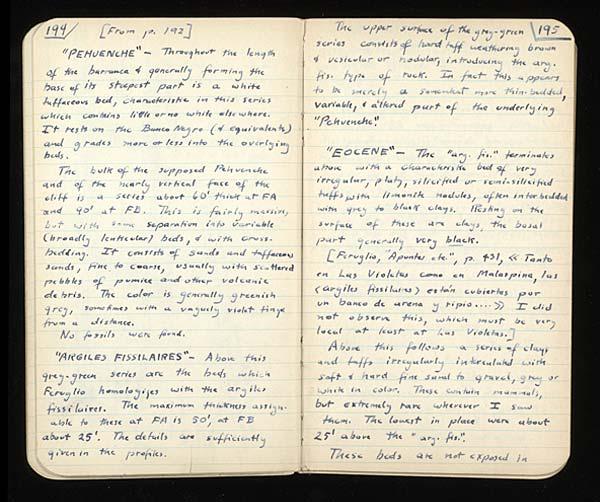 194/ [From p. 192]
"PEHUENCHE" – Throughout the length
of the barranca & generally forming the
base of its steepest part is a white
tuffaceous bed, characteristic in this series
which contains little or no white elsewhere.
It rests on the Banco Negro (& equivalents)
and grades more or less into the overlying
beds.
The bulk of the supposed Pehuenche
and of the nearly vertical face of the
cliff is a series about 60' thick at FA
and 90' at FB. This is fairly massive,
but with some separation into variable
(broadly lenticular) beds, & with cross-
bedding. It consists of sands and tuffaceous
sands, fine to coarse, usually with scattered
pebbles of pumice and other volcanic
debris. The color is generally greenish
grey, sometimes with a vaguely violet tinge
from a distance.
No fossils were found.
"ARGILES FISSILAIRES" – Above this
grey-green series are the beds which
Feruglio homologizes with the argiles
fissilaires. The maximum thickness assign-
able to these at FA is 50', at FB
about 25'. The details are sufficiently
given in the profiles.
195
The upper surface of the grey-green
series consists of hard tuff weathering brown
& vesicular or nodular, introducing the arg.
fis. type of rock. In fact this appears
to be merely a somewhat more thin-bedded,
variable, & altered part of the underlying
"Pehuenche".
"EOCENE" – The "arg. fis." terminates
above with a characteristic bed of very
irregular, platy, silicified or semi-silicified
tuffs with limonite nodules, often interbedded
with grey to black clays. Resting on the
surface of these are clays, the basal
part generally very black.
[Feruglio, "Apuntes etc.", p. 431, << Tanto
en Las Violetas como en Malaspina, las
(argiles fissilaires) están cubiertas por
un banco de arena y ripio....>> I did
not observe this, which must be very
local at least at Las Violetas.]
Above this follows a series of clays
and tuffs irregularly intercalated with
soft & hard fine sand to gravel, grey or
white in color. These contain mammals,
but extremely rare wherever I saw
them. The lowest in place were about
25' above the "arg. fis.".
These beds are not exposed in